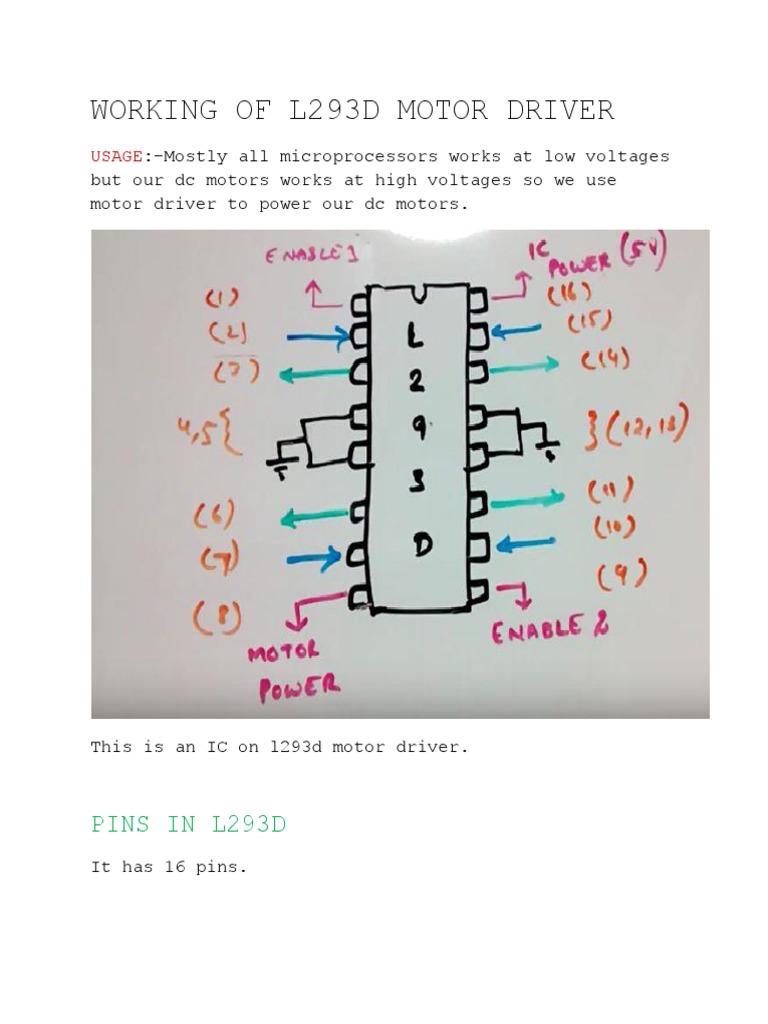 WORKING OF L293D MOTOR DRIVER
USAGE:-Mostly all microprocessors works at low voltages
but our dc motors works at high voltages so we use
motor driver to power our dc motors.
ENABLE 1
IC
POWER (5V)
(1)
(16)
(2)
L
(15)
(3)
2
(14)
4,5{
9
}(12,13)
(6)
3
(11)
(7)
D
(10)
(8)
(9)
MOTOR
POWER
ENABLE 2
This is an IC on l293d motor driver.
PINS IN L293D
It has 16 pins.